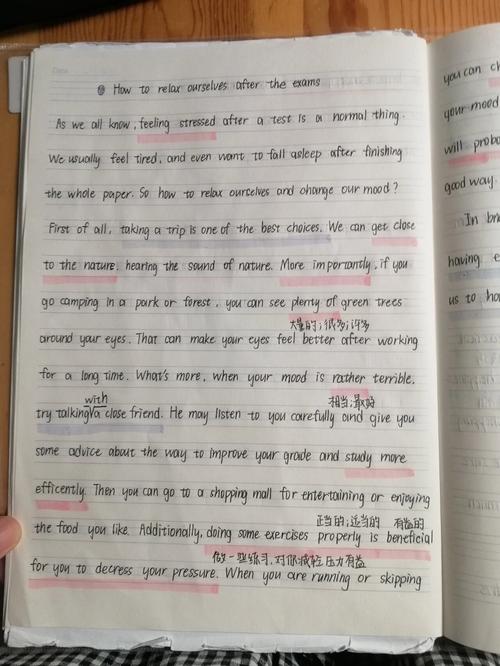 Date
How to relax ourselves after the exams
As we all know, feeling stressed after a test is a normal thing.
We usually feel tired, and even want to fall asleep after finishing
the whole paper. So how to relax ourselves and change our mood?
First of all, taking a trip is one of the best choices. We can get close
to the nature, hearing the sound of nature. More importantly, if you
go camping in a park or forest, you can see plenty of green trees
大量的；很多；许多
around your eyes. That can make your eyes feel better after working
for a long time. What's more, when your mood is rather terrible,
with 相当；最好
try talking a close friend. He may listen to you carefully and give you
some advice about the way to improve your grade and study more
efficently. Then you can go to a shopping mall for entertaining or enjoying
正当的；适当的 有益的
the food you like. Additionally, doing some exercises properly is beneficial
做一些练习，对你减轻压力有益
for you to decress your pressure. When you are running or skipping
you can ch
your mood
will prob
good way.
In br
having e
us to ho